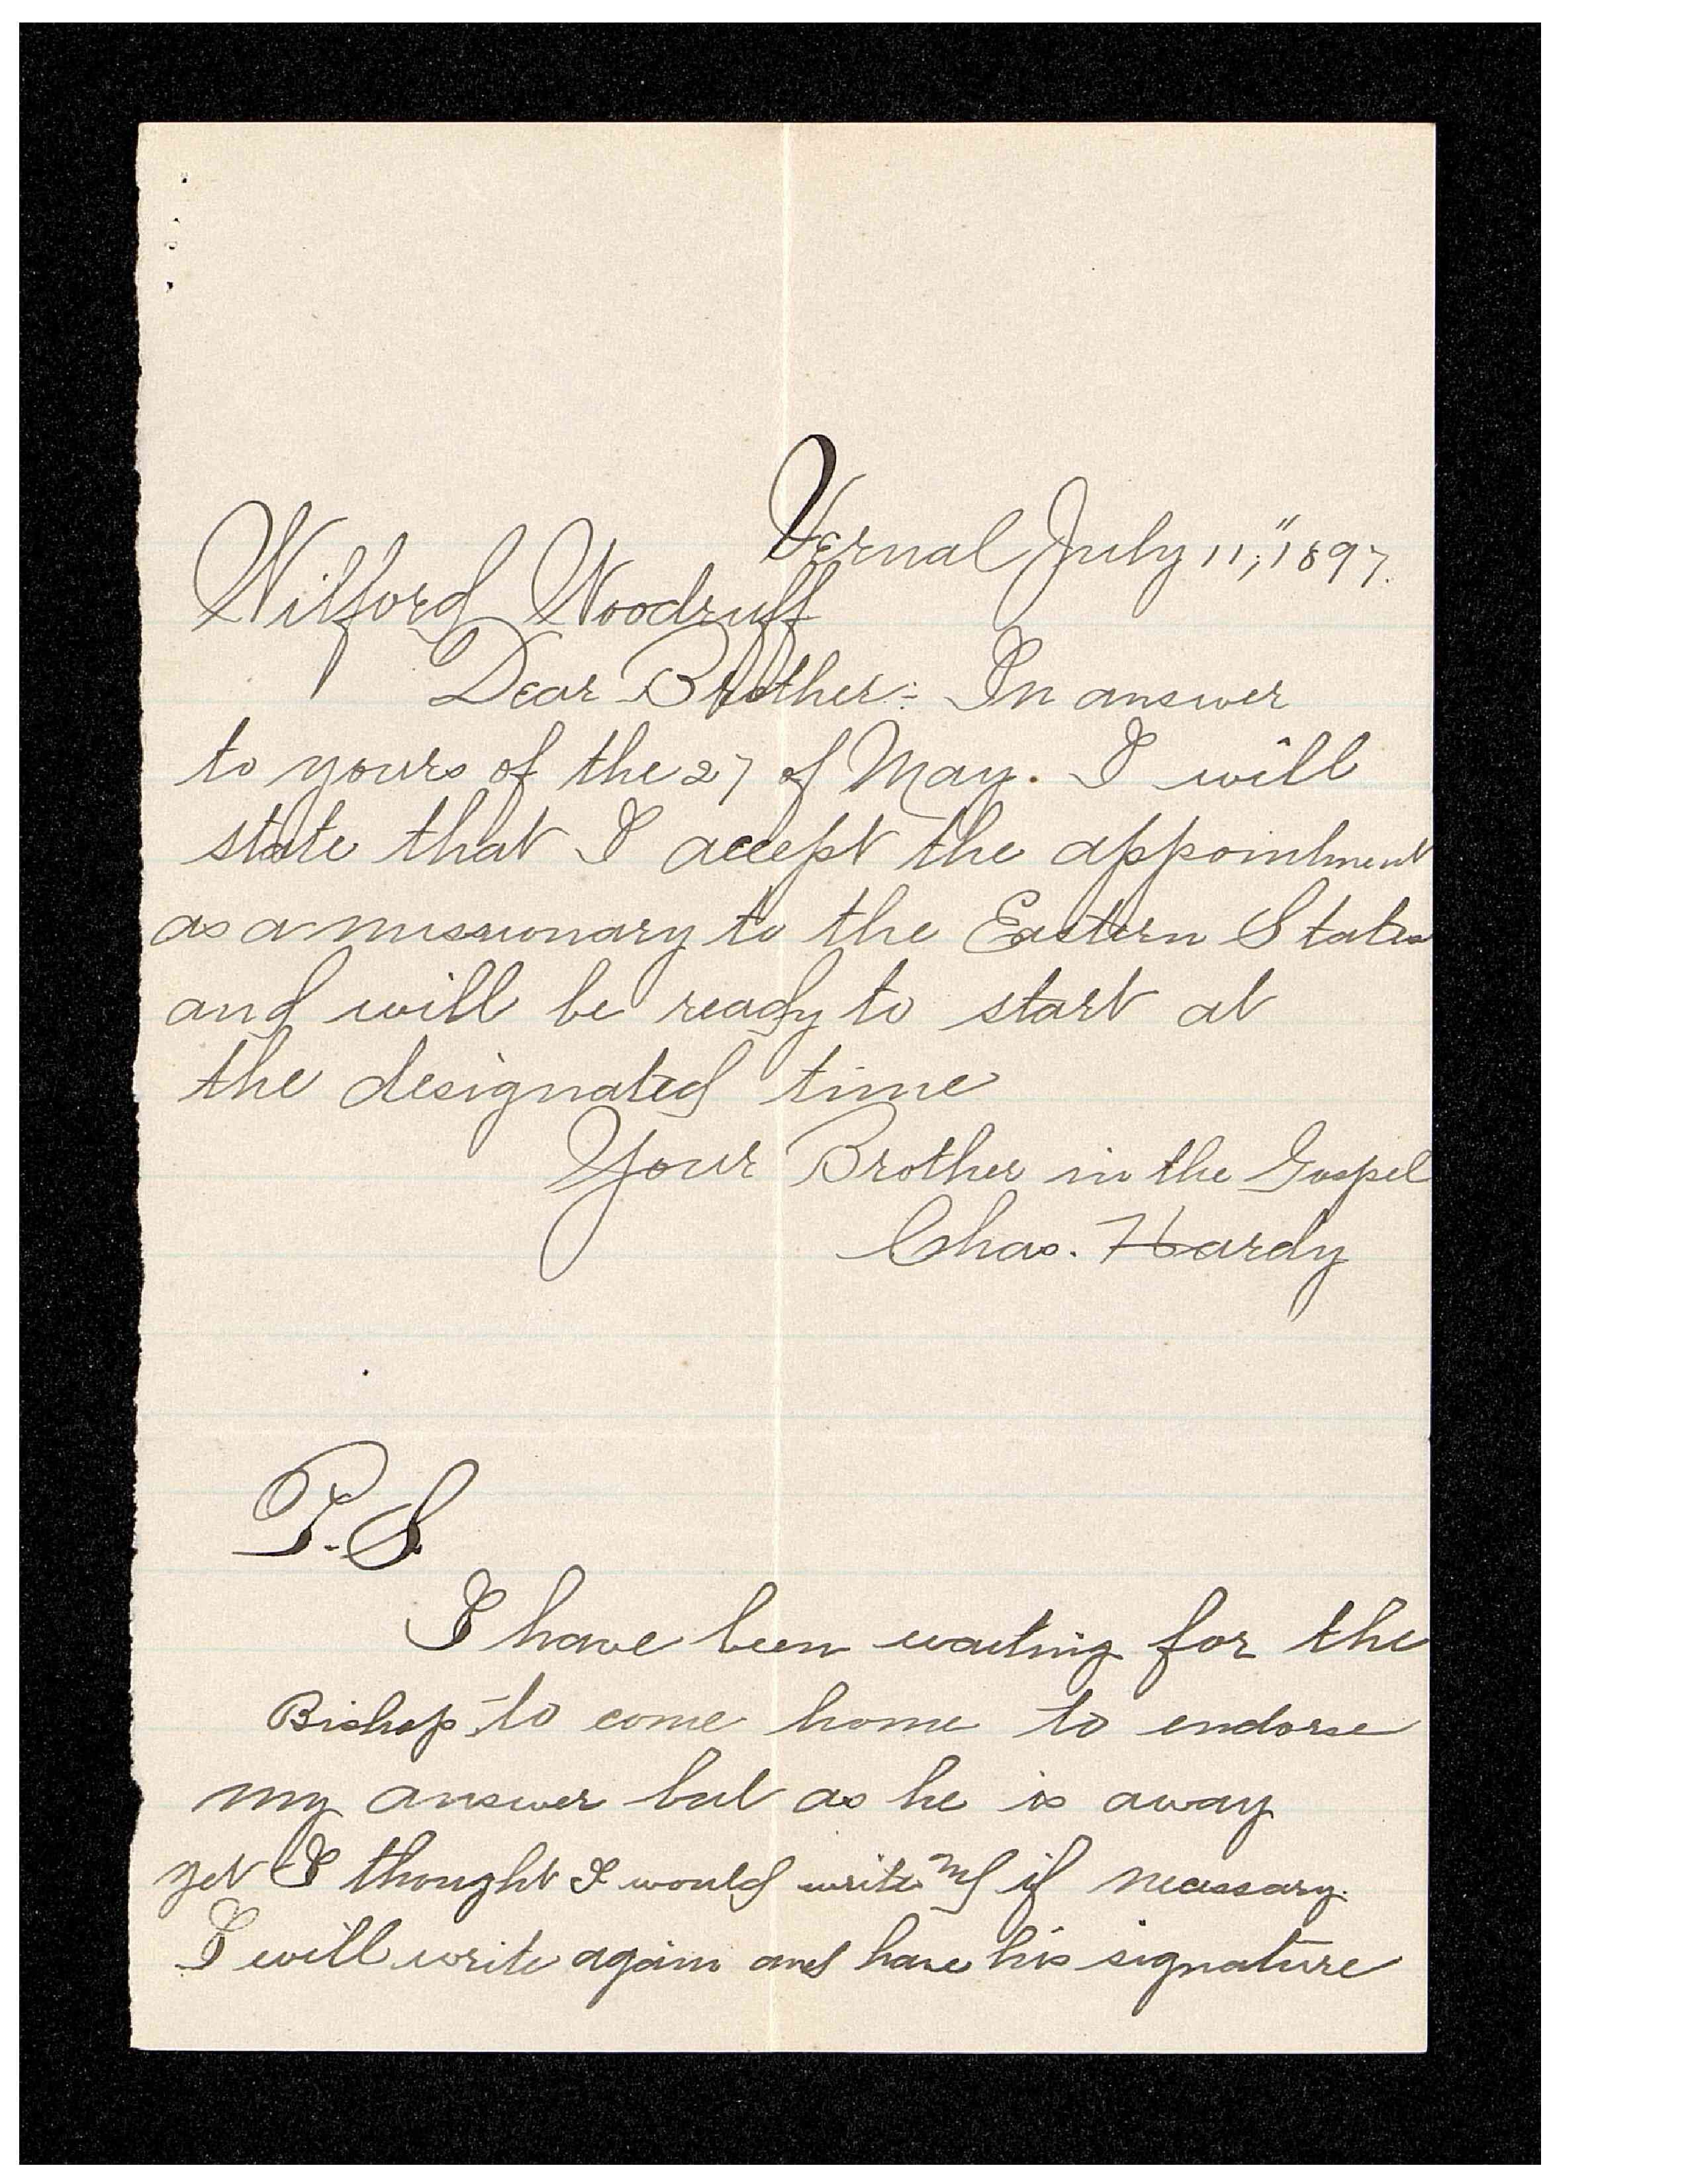 Vernal July 11," 1897.
Wilford Woodruff
Dear Brother:- In answer
to yours of the 27 of May. I will
state that I accept the appointment
as a missionary to the Eastern States
and will be ready to start at
the designated time
Your Brother in the Gospel
Chas. Hardy
P.S.
I have been waiting for the
Bishop to come home to endorse
my answer but as he is away
yet I thought I would write if necessary.
I will write again and have his signature